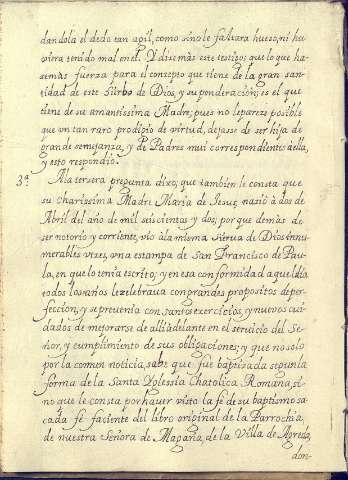 dandola el dedo tan agil, como sino le faltara hueso, ni hu
viera tenido mal en el. Y dize mas este testigo; que lo que ha-
se mas fuerza para el concepto que tiene de la gran san-
tidad de este Siirbo de Dios, y su ponderacion; es el que
tiene de su amantissima Madre; pues no le pareze posible
que un tan raro prodigio de virtud, dejasse de ser hija de
grande semejanza, y de Padres mui correspondientes à ella,
y esto respondiò.
3ª. A la tersera pregunta dixo; que tambien le consta que
su charissima Madre Maria de Jesus, nasiò à dos de
Abril del año de mil seiscientos y dos; por que demàs de
ser notorio y corriente, viò à la misma Sierva de Dios innu-
merables veses, una estampa de San Francisco de Pau-
la, en que lo tenia escrito; y en esa conformidad aquel dia
todos los años le zelebrava con grandes propositos de per-
feccion; y se prevenia con santos exercicios, y nuevos cui-
dados de mejorarse de alli adelante en el servicio del Se-
ñor, y cumplimiento de sus obligaciones; y que no solo
por la comun noticia, sabe que fue baptizada segun la
forma de la Santa Yglessia Chatolica Romana, si-
no que le consta por haver visto la fè de su baptismo sa-
cada fè faciente del libro original de la Parrochia
de nuestra Señora de Magaña, de la Villa de Agreda,
don-